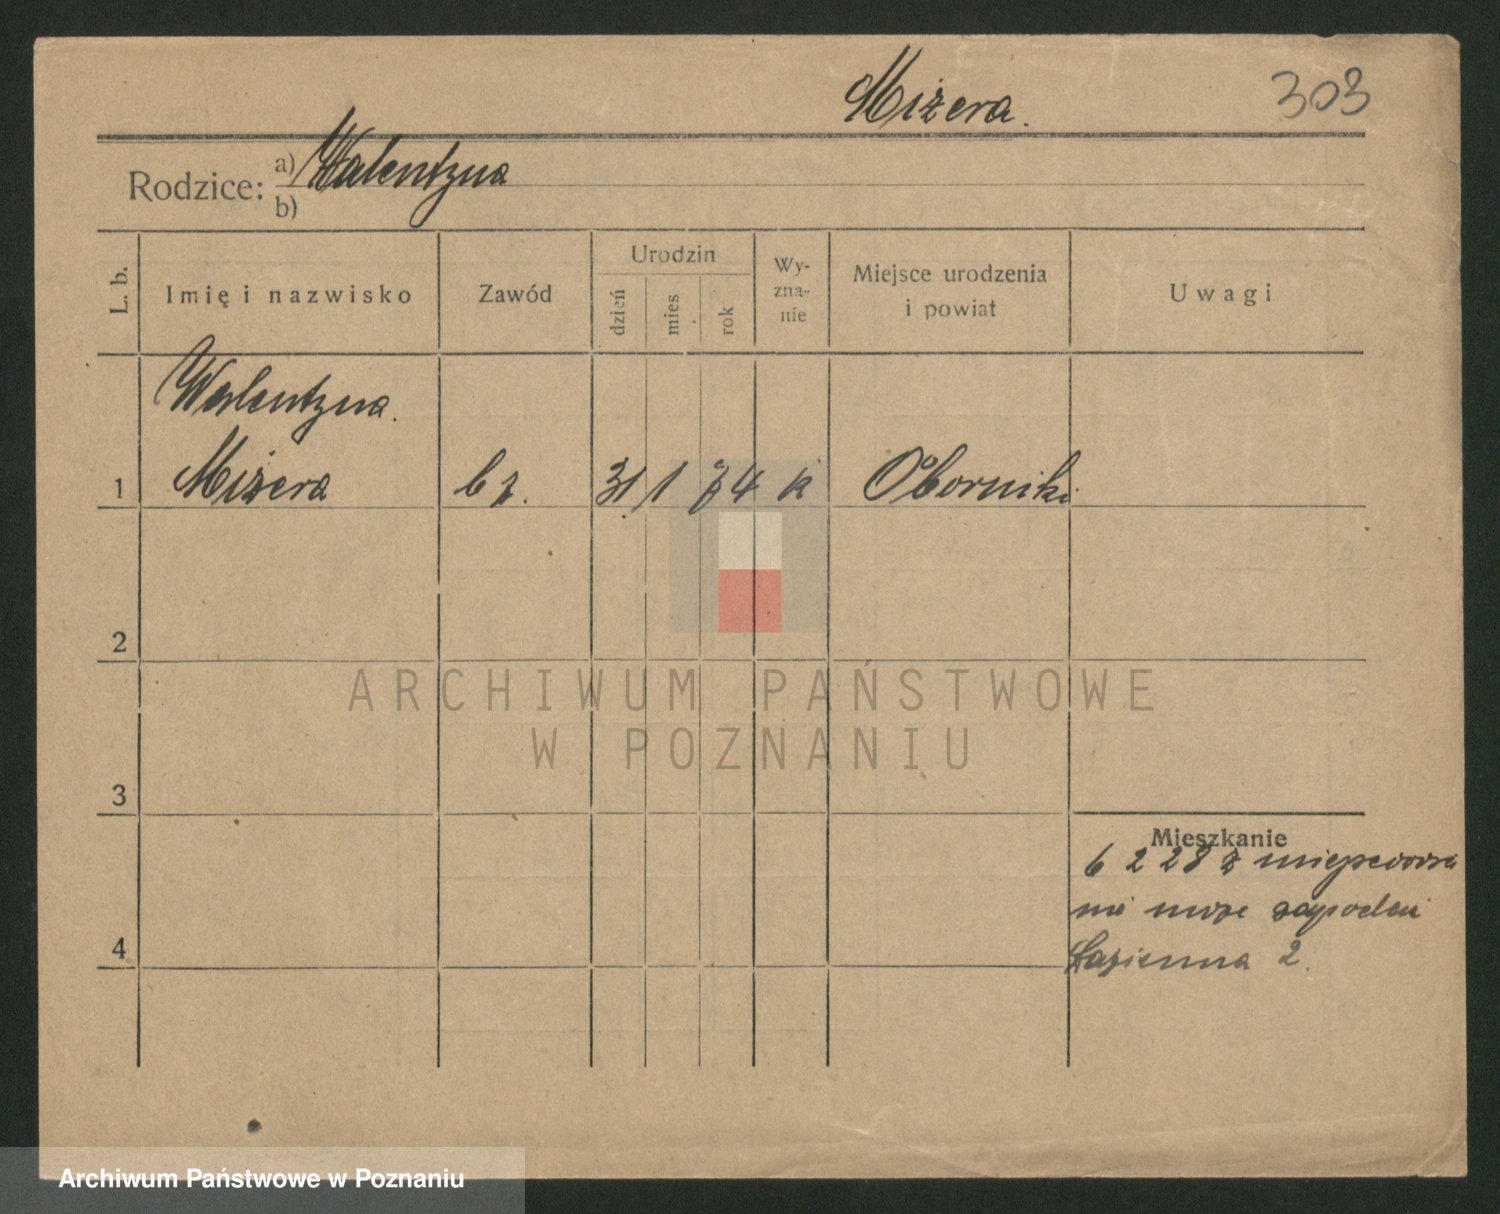 Miżera.
303
Rodzice: a) Walentyna
b)
L. b.
Imię i nazwisko
Zawód
Urodzin
dzień
mies
rok
Wy-
zna-
nie
Miejsce urodzenia
i powiat
Uwagi
Walentyna.
1 Miżera b z. 31 1 74 k Oborniki
2
3
4
Mieszkanie
6 2 28 z miejscowa
nie może zapodać
Łazienna 2.
ARCHIWUM PAŃSTWOWE
W POZNANIU
Archiwum Państwowe w Poznaniu